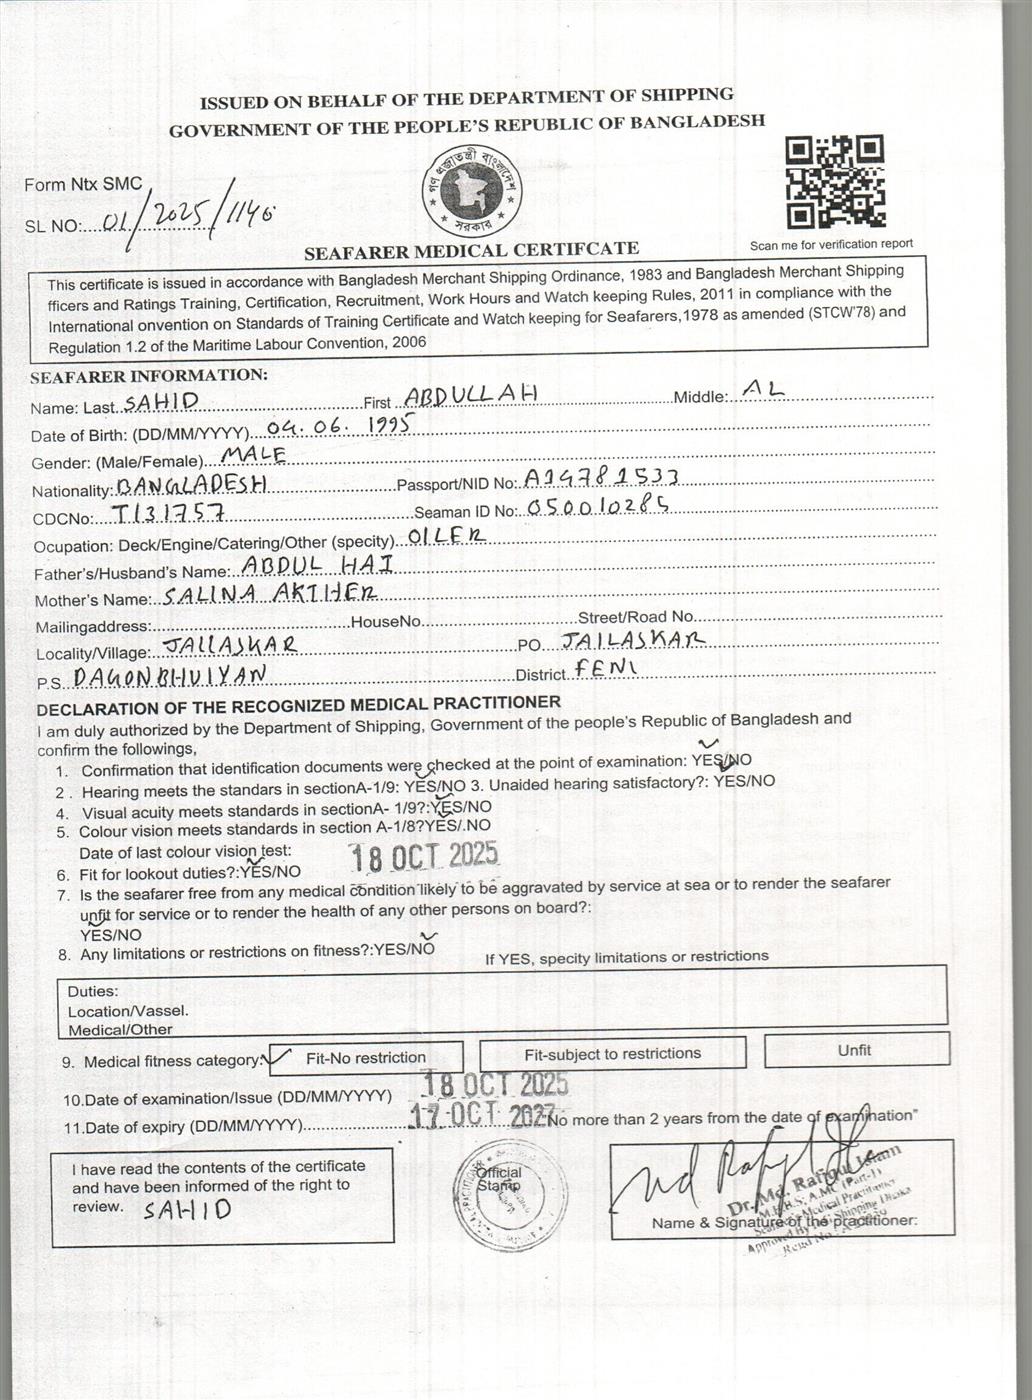 ISSUED ON BEHALF OF THE DEPARTMENT OF SHIPPING
GOVERNMENT OF THE PEOPLE'S REPUBLIC OF BANGLADESH
গণপ্রজাতন্ত্রী বাংলাদেশ
সরকার
Form Ntx SMC
SL NO:....01/2025/1146
Scan me for verification report
SEAFARER MEDICAL CERTIFCATE
This certificate is issued in accordance with Bangladesh Merchant Shipping Ordinance, 1983 and Bangladesh Merchant Shipping
fficers and Ratings Training, Certification, Recruitment, Work Hours and Watch keeping Rules, 2011 in compliance with the
International onvention on Standards of Training Certificate and Watch keeping for Seafarers,1978 as amended (STCW'78) and
Regulation 1.2 of the Maritime Labour Convention, 2006
SEAFARER INFORMATION:
Name: Last..SAHID First ABDULLAH Middle: AL
Date of Birth: (DD/MM/YYYY)...04.06.1995
Gender: (Male/Female)..MALE
Nationality: BANGLADESH Passport/NID No: A14781533
CDCNo: T131757 Seaman ID No: 050010285
Ocupation: Deck/Engine/Catering/Other (specity)..OILER
Father's/Husband's Name: ABDUL HAI
Mother's Name: SALINA AKTHER
Mailingaddress: HouseNo. Street/Road No.
Locality/Village: JAILASKAR PO JAILASKAR
P.S. DAGONBHUIYAN District FENI
DECLARATION OF THE RECOGNIZED MEDICAL PRACTITIONER
I am duly authorized by the Department of Shipping, Government of the people's Republic of Bangladesh and
confirm the followings,
1. Confirmation that identification documents were checked at the point of examination: YES/NO
2 . Hearing meets the standars in sectionA-1/9: YES/NO 3. Unaided hearing satisfactory?: YES/NO
4. Visual acuity meets standards in sectionA- 1/9?:YES/NO
5. Colour vision meets standards in section A-1/8?YES/.NO
Date of last colour vision test: 18 OCT 2025
6. Fit for lookout duties?:YES/NO
7. Is the seafarer free from any medical condition likely to be aggravated by service at sea or to render the seafarer
unfit for service or to render the health of any other persons on board?:
YES/NO
8. Any limitations or restrictions on fitness?:YES/NO If YES, specify limitations or restrictions
Duties:
Location/Vassel.
Medical/Other
9. Medical fitness category: Fit-No restriction Fit-subject to restrictions Unfit
10.Date of examination/Issue (DD/MM/YYYY) 18 OCT 2025
11.Date of expiry (DD/MM/YYYY) 17 OCT 2027 No more than 2 years from the date of examination"
I have read the contents of the certificate
and have been informed of the right to
review. SAHID
Official
Stamp
Md Rafiqul
Dr. Md. Rafiqul Islam
Name & Signature of the practitioner: